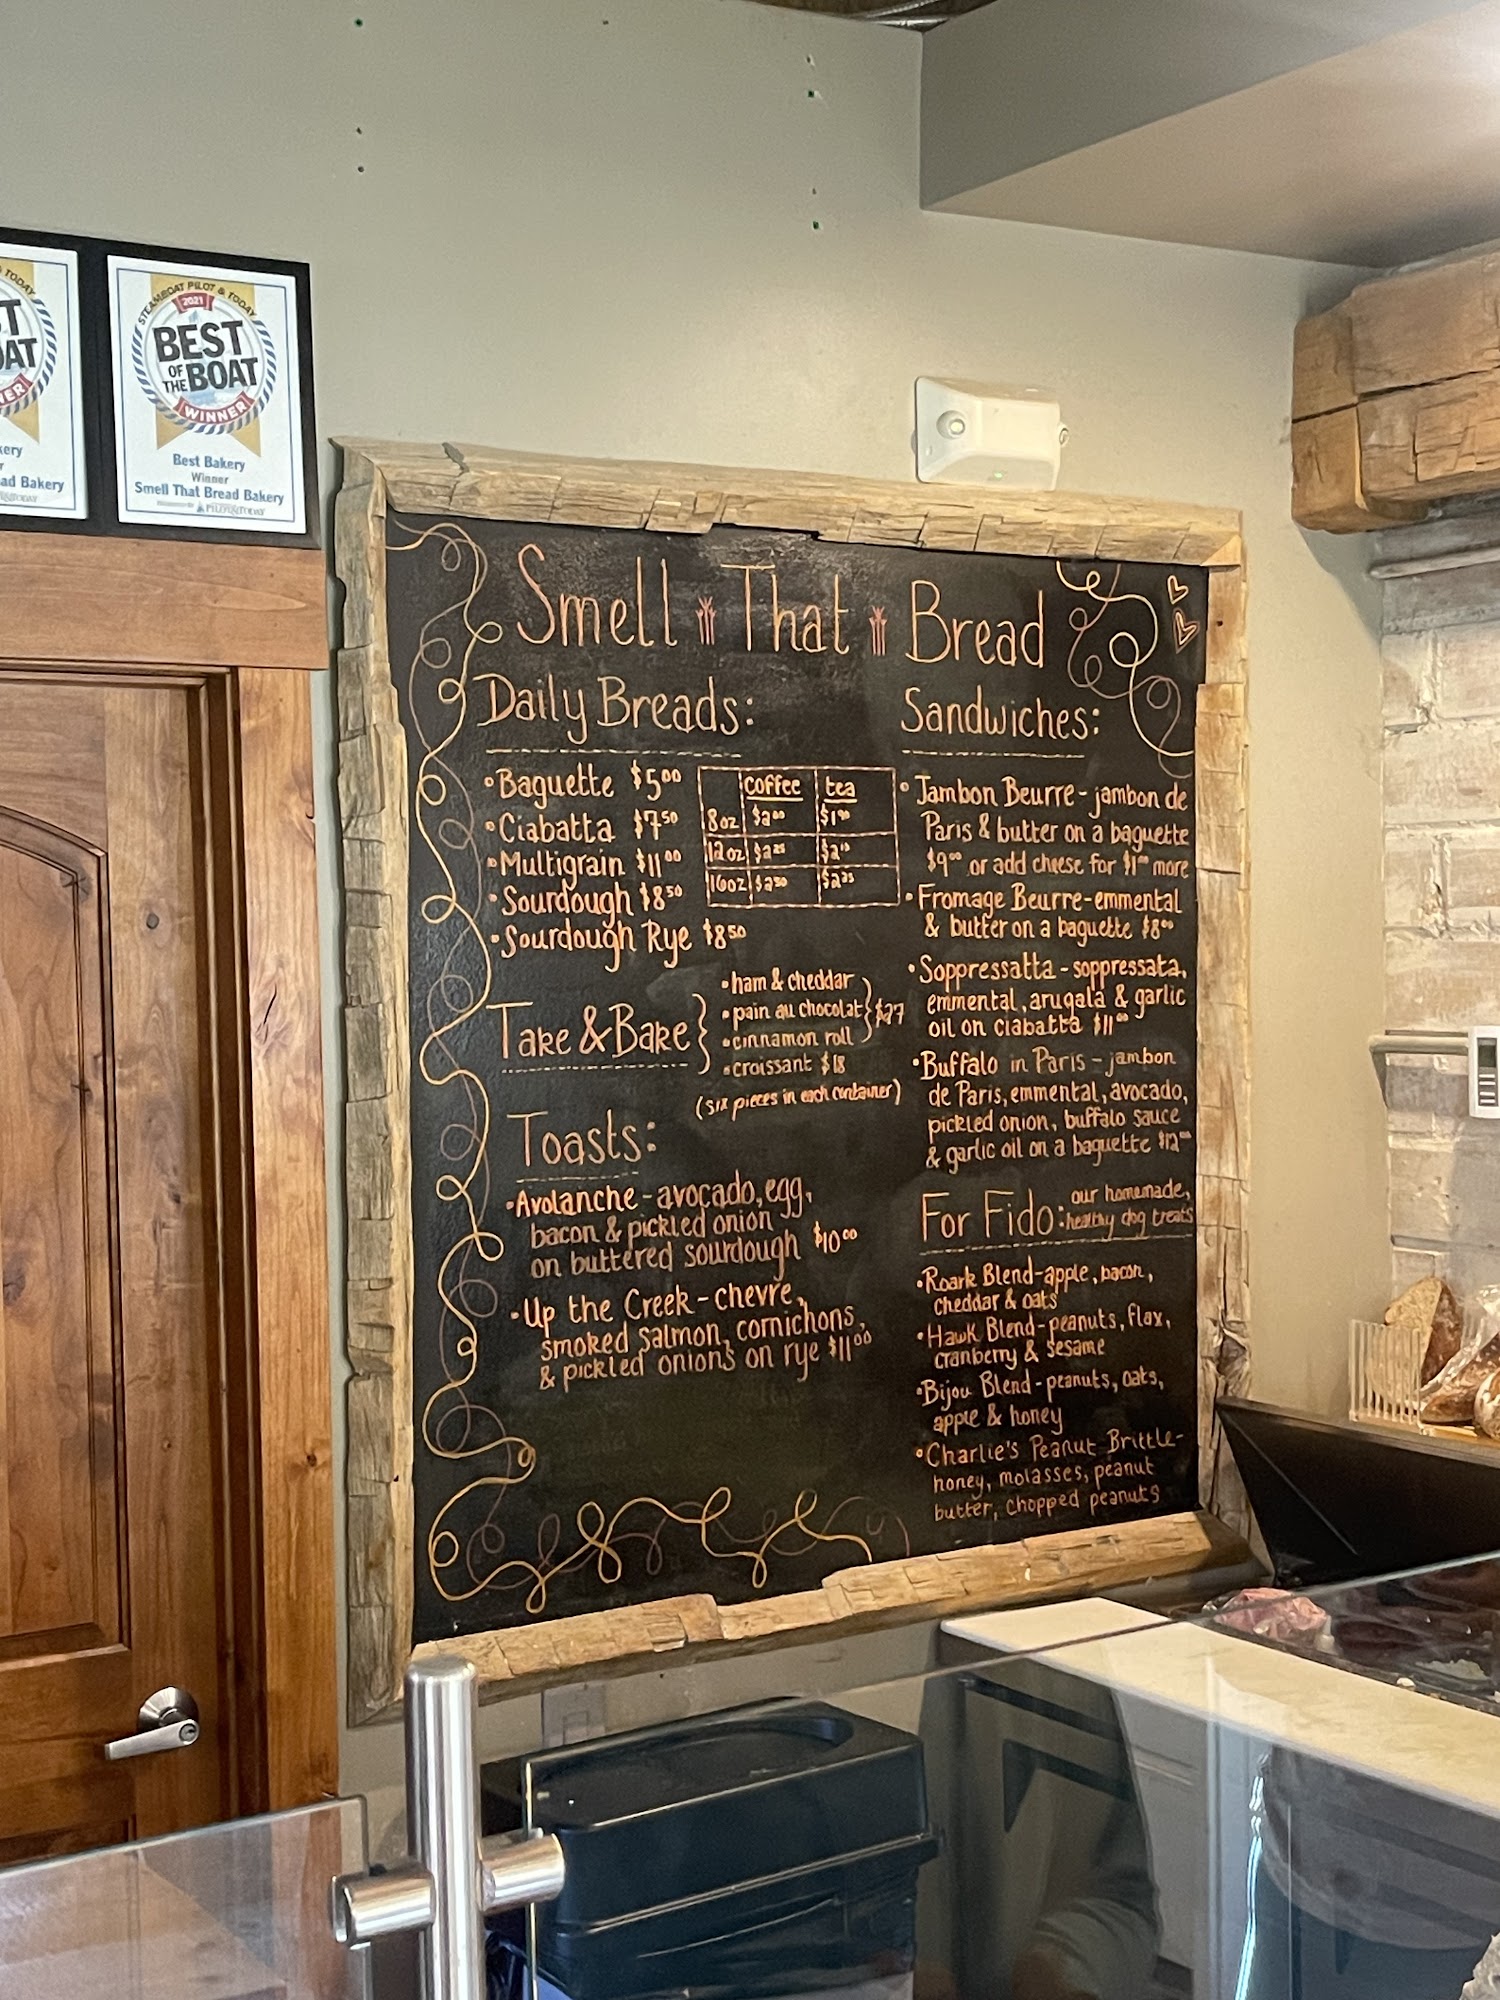 STEAMBOAT PILOT & TODAY
2021
BEST
OF
THE BOAT
WINNER
Best Bakery
Winner
Smell That Bread Bakery
Smell That Bread
Daily Breads:
• Baguette $5.00
• Ciabatta $7.50
• Multigrain $11.00
• Sourdough $8.50
• Sourdough Rye $8.50
coffee tea
8oz $2.00
12oz $2.25
16oz $2.50 $2.25
Take & Bake
• ham & cheddar
• pain au chocolat $27
• cinnamon roll
• croissant $18
(six pieces in each container)
Toasts:
• Avolanche - avocado, egg,
bacon & pickled onion
on buttered sourdough $10.00
• Up the Creek - chevre,
smoked salmon, cornichons,
& pickled onions on rye $11.00
Sandwiches:
• Jambon Beurre - jambon de
Paris & butter on a baguette
$9.00 or add cheese for $1.00 more
• Fromage Beurre - emmental
& butter on a baguette $8.00
• Soppressatta - soppressata,
emmental, arugala & garlic
oil on ciabatta $11.00
• Buffalo in Paris - jambon
de Paris, emmental, avocado,
pickled onion, buffalo sauce
& garlic oil on a baguette $12.00
For Fido: our homemade,
healthy dog treats
• Roark Blend - apple, bacon,
cheddar & oats
• Hawk Blend - peanuts, flax,
cranberry & sesame
• Bijou Blend - peanuts, oats,
apple & honey
• Charlie's Peanut Brittle -
honey, molasses, peanut
butter, chopped peanuts